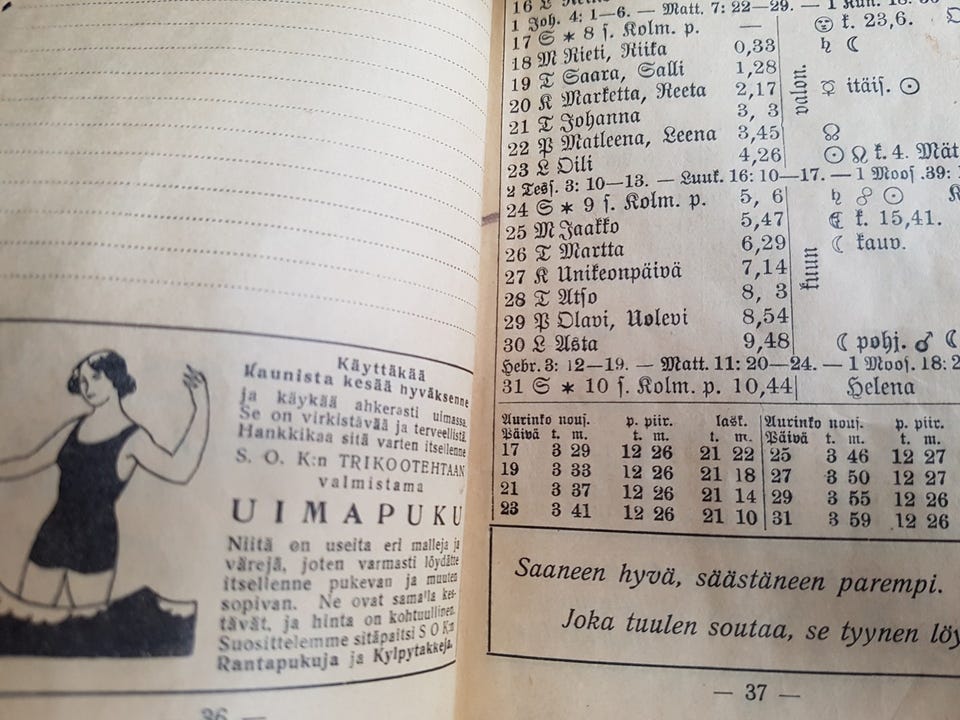 Käyttäkää
kaunista kesää hyväksenne
ja käykää ahkerasti uimassa.
Se on virkistävää ja terveellistä.
Hankkikaa sitä varten itsellenne
S. O. K:n TRIKOOTEHTAAN
valmistama
UIMAPUKU
Niitä on useita eri malleja ja
värejä, joten varmasti löydätte
itsellenne pukevan ja muuten
sopivan. Ne ovat samalla kes-
tävät, ja hinta on kohtuullinen.
Suosittelemme sitäpaitsi S O K:n
Rantapukuja ja Kylpytakkeja.
36 —
16 L
1 Joh. 4: 1—6. — Matt. 7: 22—29. — 1 Kun. 18:
17 S * 8 s. Kolm. p. — k. 23,6.
18 M Rieti, Riika 0,33 ♄ ☾
19 T Saara, Salli 1,28
20 K Marketta, Reeta 2,17 valon. ☿ itäis. ☉
21 T Johanna 3, 3
22 P Matleena, Leena 3,45 ☊
23 L Oili 4,26 ☉ ♌ k. 4. Mät
2 Tess. 3: 10—13. — Luuk. 16: 10—17. — 1 Moos. 39:
24 S * 9 s. Kolm. p. 5, 6 ♄ ☍ ☉
25 M Jaakko 5,47 k. 15,41.
26 T Martta 6,29 ☾ kauv.
27 K Unikeonpäivä 7,14 kuun
28 T Atso 8, 3
29 P Olavi, Uolevi 8,54
30 L Asta 9,48 ☾ pohj. ♂ ☾
Hebr. 3: 12—19. — Matt. 11: 20—24. — 1 Moos. 18: 2
31 S * 10 s. Kolm. p. 10,44 Helena
Aurinko nous. p. piir. lask. Aurinko nous. p. piir.
Päivä t. m. t. m. t. m. Päivä t. m. t. m.
17 3 29 12 26 21 22 25 3 46 12 27
19 3 33 12 26 21 18 27 3 50 12 27
21 3 37 12 26 21 14 29 3 55 12 26
23 3 41 12 26 21 10 31 3 59 12 26
Saaneen hyvä, säästäneen parempi.
Joka tuulen soutaa, se tyynen löy
— 37 —